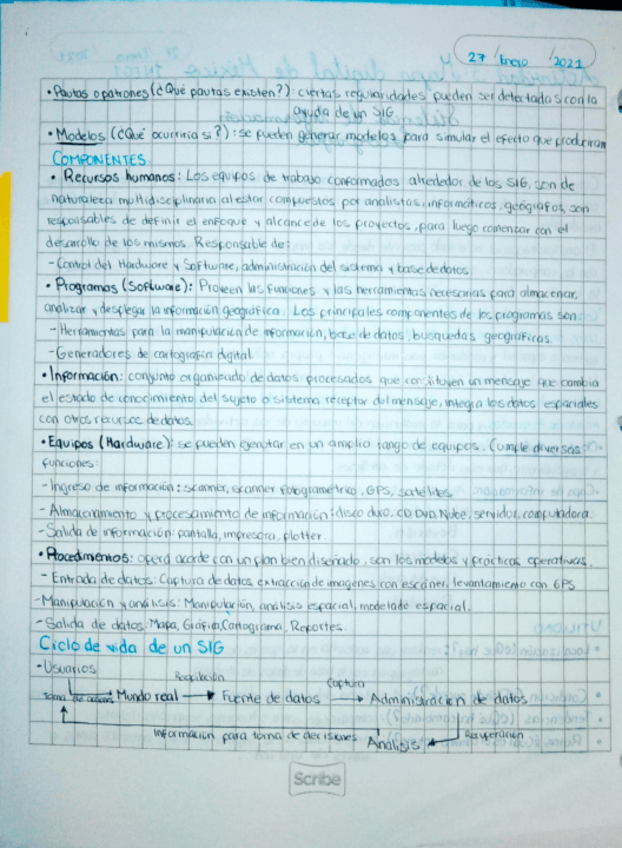 27 Enero 2021
• Pautas o patrones (¿Qué pautas existen?): ciertas regularidades pueden ser detectadas con la
ayuda de un SIG
• Modelos (¿Qué ocurriría si?): se pueden generar modelos para simular el efecto que producirían
COMPONENTES
• Recursos humanos: Los equipos de trabajo conformados alrededor de los SIG, son de
naturaleza multidisciplinaria al estar compuestos por analistas, informáticos, geógrafos, son
responsables de definir el enfoque y alcance de los proyectos, para luego comenzar con el
desarollo de los mismos. Responsable de:
- Control del Hardware y Software, administración del sistema y base de datos
• Programas (Software): Proveen las funciones y las herramientas necesarias para almacenar,
analizar y desplegar la información geográfica. Los principales componentes de los programas son
- Herramientas para la manipulación de información, base de datos, busquedas geográficas.
- Generadores de cartografía digital.
• Información: conjunto organizado de datos procesados que constituyen un mensaje que cambia
el estado de conocimiento del sujeto o sistema receptor del mensaje, integra los datos espaciales
con otros recursos de datos.
• Equipos (Hardware): se pueden ejecutar en un amplio rango de equipos. Cumple diversas
funciones:
- Ingreso de información: scanner, scanner fotogrametrico, GPS, satélites
- Almacenamiento y procesamiento de información: disco duro, CD DVD, Nube, servidor, computadora.
- Salida de información: pantalla, impresora, plotter.
• Procedimientos: opera acorde con un plan bien diseñado, son los modelos y prácticas operativas.
- Entrada de datos: Captura de datos, extracción de imagenes con escáner, levantamiento con GPS
- Manipulación y análisis: Manipulación, análisis espacial, modelado espacial.
- Salida de datos: Mapa, Gráfica, Cartograma, Reportes.
Ciclo de vida de un SIG
- Usuarios
Recopilación Captura
Toma de Mundo real → Fuente de datos → Administración de datos
Información para toma de decisiones Analisis Recuperación
Scribe